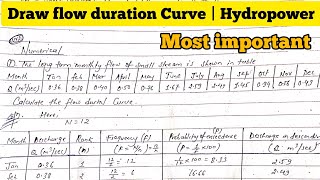 Draw flow duration Curve | Hydropower
Most important
Numerical
The long term monthly flow of small stream is shown in table
Month Jan Feb Mar April May June July Aug Sep Oct Nov Dec
Q (m³/sec) 0.36 0.38 0.40 0.50 0.76 1.67 2.59 2.49 1.45 0.94
Calculate the flow
Here,
N = 12
Month Discharge Rank Frequency (F) Probability of exceedence Discharge in descending
Q (m³/sec) (n) Q (m³/sec)
Jan 0.36 1 12/1 = 12 1/12 × 100 = 8.33 2.59
feb 0.38 2 12/2 = 6 16.66 2.49